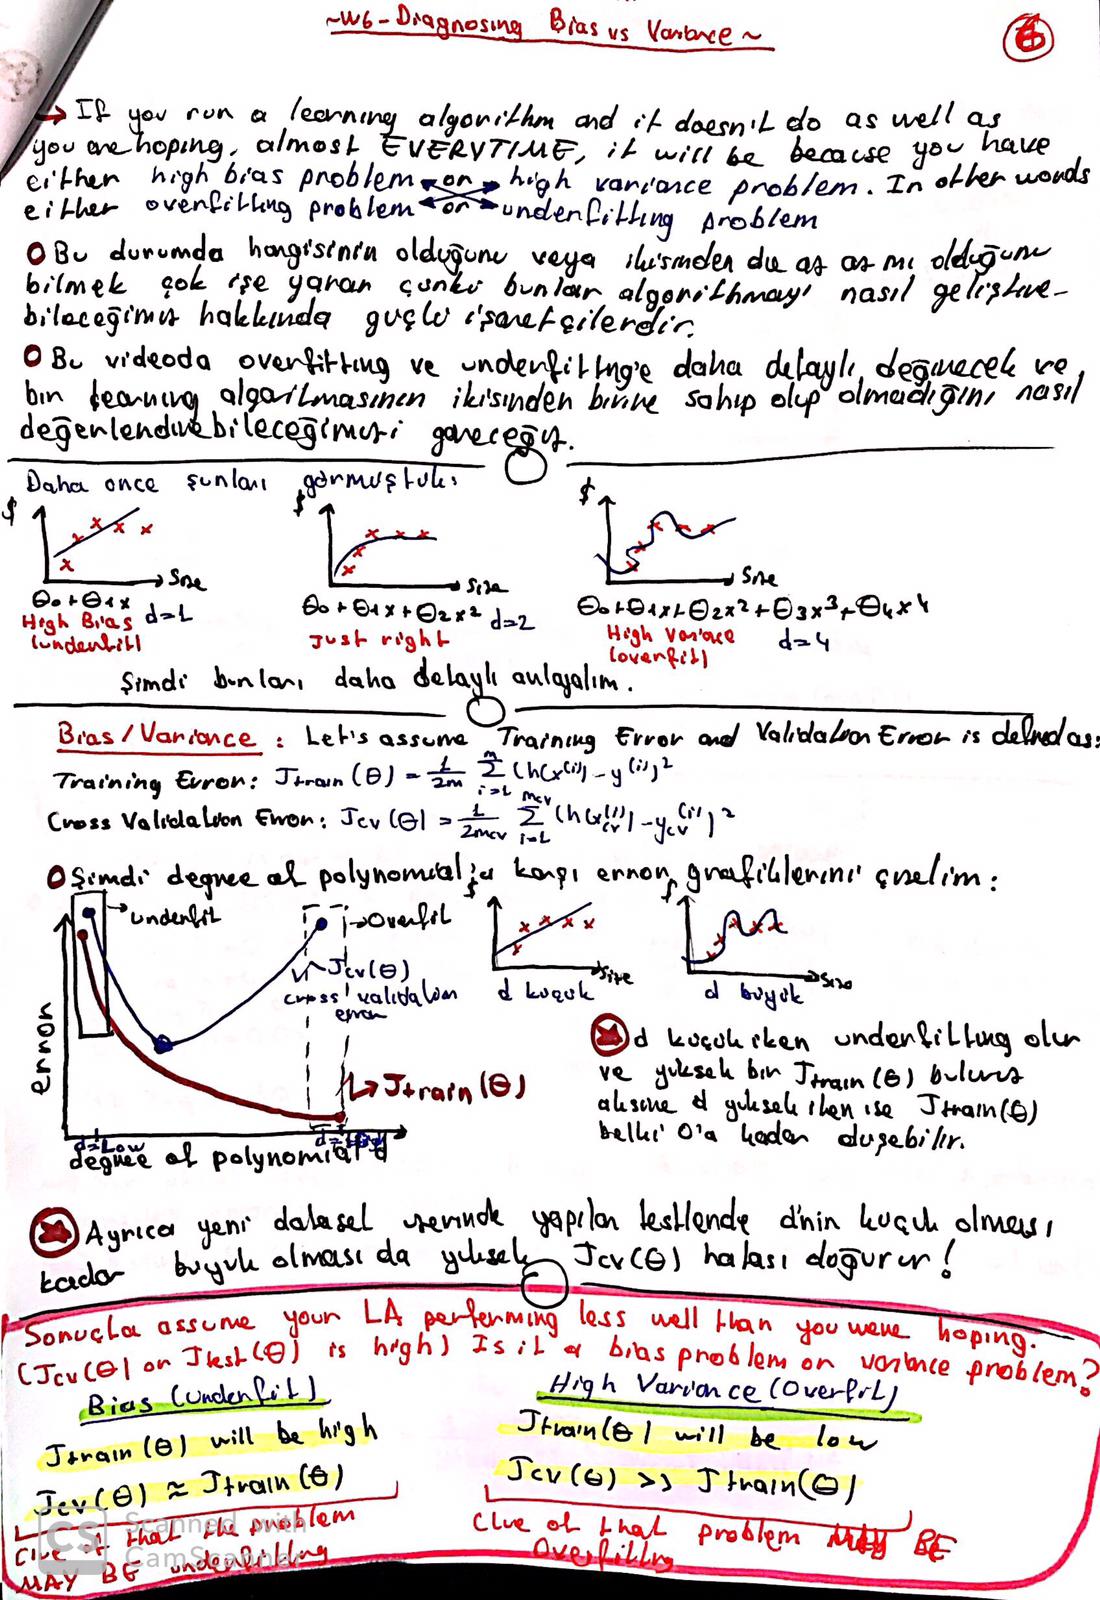 ~W6-Diagnosing Bias vs Variance~
6
→ If you run a learning algorithm and it doesn't do as well as
you are hoping, almost EVERYTIME, it will be because you have
either high bias problem or high variance problem. In other words
either overfitting problem or underfitting problem
O Bu durumda hangisinin olduğunu veya ikisinden de az az mı olduğunu
bilmek çok işe yarar çünkü bunlar algorithmayı nasıl geliştire-
bileceğimiz hakkında güçlü işaretçilerdir.
O Bu videoda overfitting ve underfitting'e daha detaylı değinecek ve
bir learning algoritmasının ikisinden birine sahip olup olmadığını nasıl
değerlendirebileceğimizi göreceğiz.
Daha önce şunları görmüştük:
$ $ $
Size Size Size
θ0+θ1x d=1 θ0+θ1x+θ2x² d=2 θ0+θ1x+θ2x²+θ3x³+θ4x⁴
High Bias Just right High Variace d=4
(underfit) (overfit)
Şimdi bunları daha detaylı anlayalım.
Bias/Variance: Let's assume Training Error and Validation Error is defined as:
Training Error: Jtrain(θ) = 1/2m Σ i=1 m (h(x⁽ⁱ⁾)-y⁽ⁱ⁾)²
Cross Validation Error: Jcv(θ) = 1/2mcv Σ i=1 mcv (h(xcv⁽ⁱ⁾)-ycv⁽ⁱ⁾)²
O Şimdi degree of polynomial'a karşı error grafiklerini çizelim:
→underfit
→Overfit
Jcv(θ)
cross validation
error
→Jtrain(θ)
error
d=Low
degree of polynomial d
$ Size
d küçük
$ Size
d büyük
★ d küçükken underfitting olur
ve yüksek bir Jtrain(θ) buluruz
aksine d yüksek iken ise Jtrain(θ)
belki 0'a kadar düşebilir.
★ Ayrıca yeni dataset üzerinde yapılan testlerde d'nin küçük olması
kadar büyük olması da yüksek Jcv(θ) hatası doğurur!
Sonuçta assume your LA performing less well than you were hoping.
(Jcv(θ) or Jtest(θ) is high) Is it a bias problem or variance problem?
Bias (Underfit)
Jtrain(θ) will be high
Jcv(θ) ≈ Jtrain(θ)
Clue of that the problem
MAY BE underfitting
High Variance (Overfit)
Jtrain(θ) will be low
Jcv(θ) >> Jtrain(θ)
Clue of that problem MAY BE
Overfitting
CS Scanned with
CamScanner